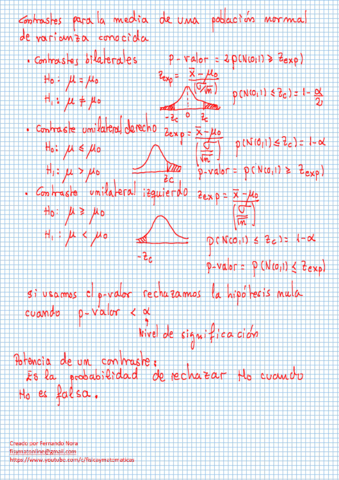 Contrastes para la media de una población normal
de varianza conocida
• Contrastes bilaterales
p-valor = 2p(N(0,1) ≥ Zexp)
H₀: μ = μ₀
H₁: μ ≠ μ₀
Zexp = (x̄ - μ₀)/(σ/√n)
p(N(0,1) ≤ Zc) = 1 - α/2
-Zc 0 Zc
• Contraste unilateral derecho
H₀: μ ≤ μ₀
H₁: μ > μ₀
Zc
Zexp = (x̄ - μ₀)/(σ/√n)
p(N(0,1) ≤ Zc) = 1-α
p-valor = p(N(0,1) ≥ Zexp)
• Contraste unilateral izquierdo
H₀: μ ≥ μ₀
H₁: μ < μ₀
-Zc
Zexp = (x̄ - μ₀)/(σ/√n)
p(N(0,1) ≤ Zc) = 1-α
p-valor = p(N(0,1) ≤ Zexp)
si usamos el p-valor rechazamos la hipótesis nula
cuando p-valor < α
Nivel de significación
Potencia de un contraste:
Es la probabilidad de rechazar H₀ cuando
H₀ es falsa.
Creado por Fernando Nora
fisymatonline@gmail.com
https://www.youtube.com/c/fisicaymatematicas